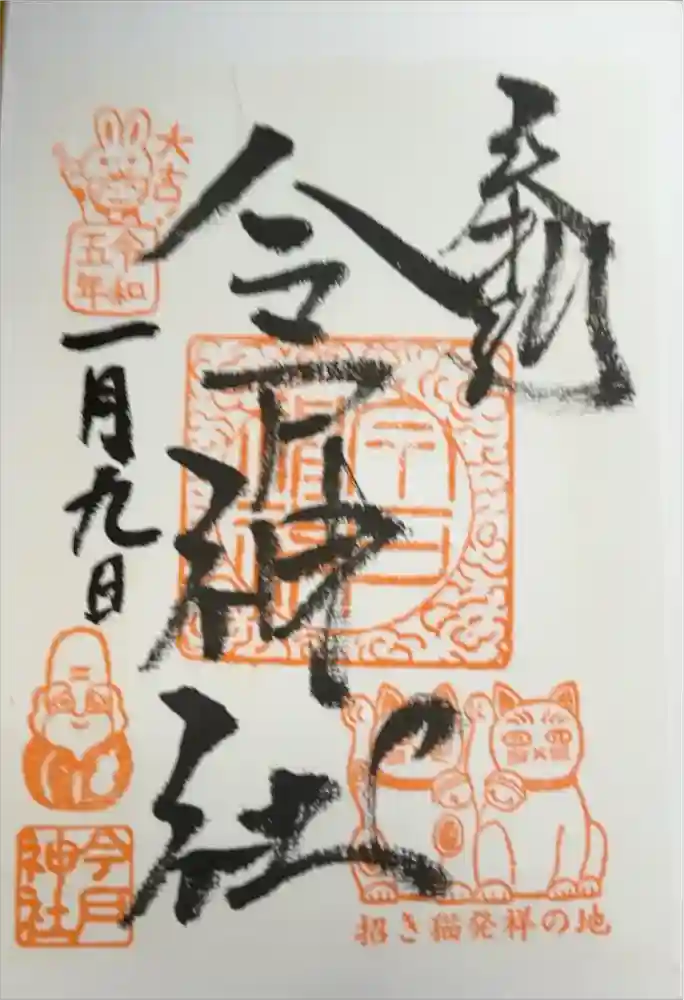 奉拝
今戸神社
大吉
令和
五年
一月九日
今戸
神社
招き猫発祥の地